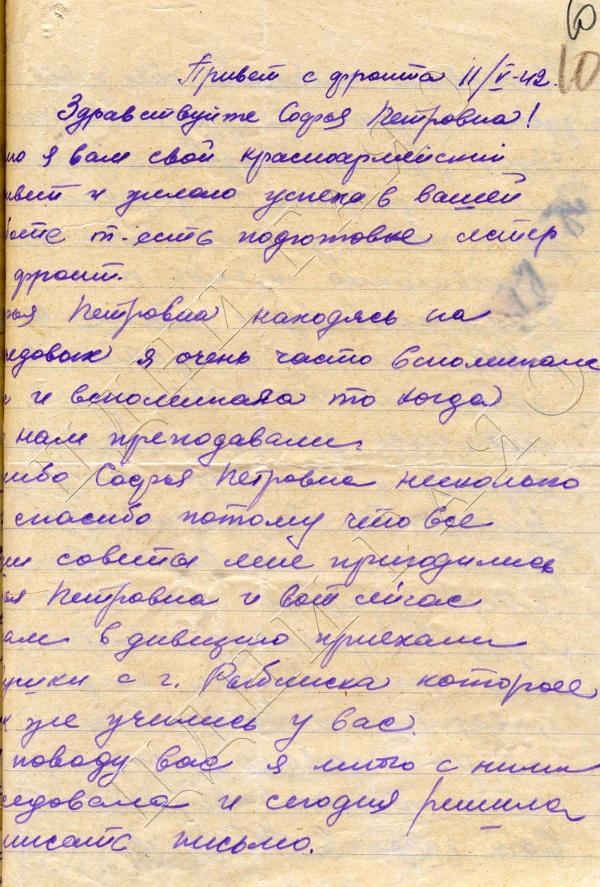 10
Привет с фронта 11/V-42.
Здравствуйте Софья Петровна!
ю я вам свой красноармейский
ивет и желаю успеха в вашей
боте т-есть подготовке сестер
фронт.
ья Петровна находясь на
редовых я очень часто вспоминала
и вспоминала то когда
нам преподавали.
сибо Софья Петровна несколько
спасибо потому что все
ши советы мне пригодились
ья Петровна и вот сичас
нам в дивизию приехали
ушки с г. Рыбинска которое
к же учились у вас.
поводу вас я лично с ними
седовала и сегодня решила
писать письмо.
ЦДНИ ГАЯО